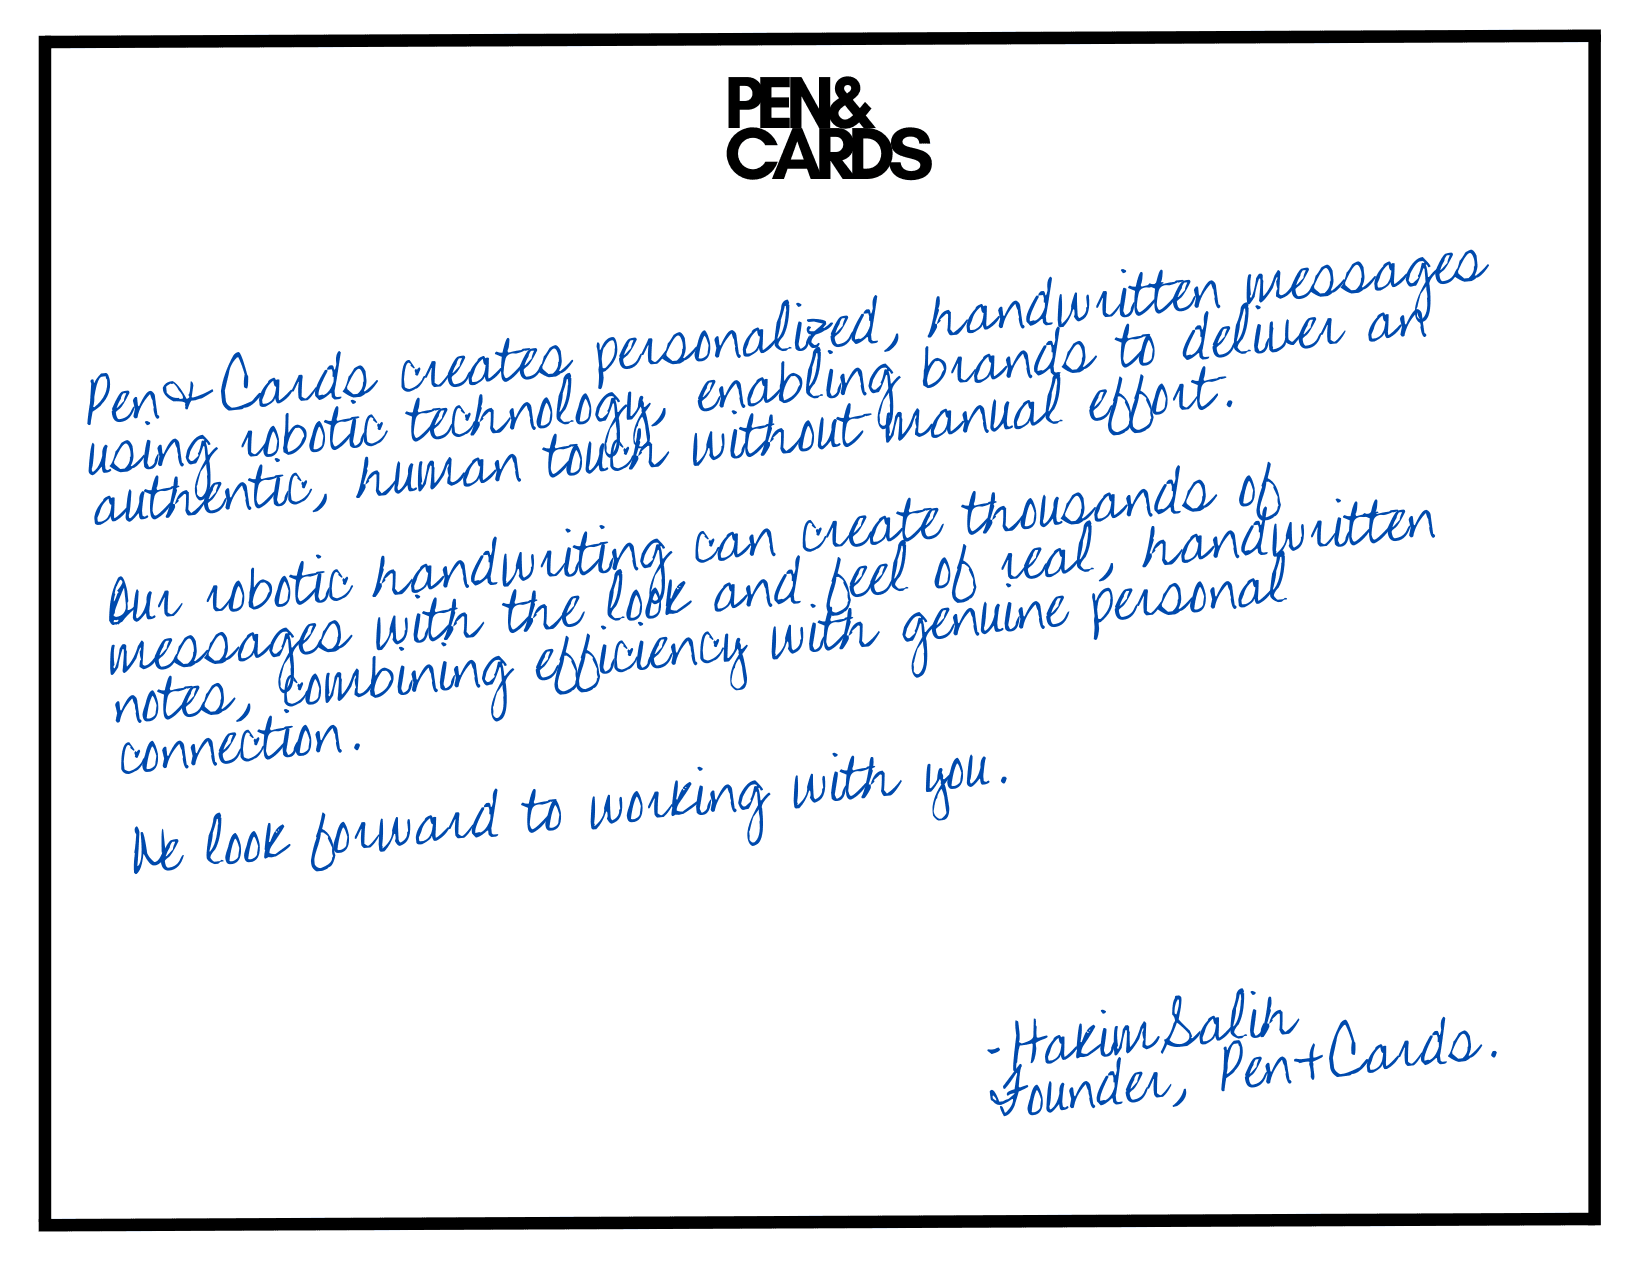 PEN&
CARDS
Pen& Cards creates personalized, handwritten messages
using robotic technology, enabling brands to deliver an
authentic, human touch without manual effort.
Our robotic handwriting can create thousands of
messages with the look and feel of real, handwritten
notes, combining efficiency with genuine personal
connection.
We look forward to working with you.
-Hakim Salih
Founder, Pen+Cards.